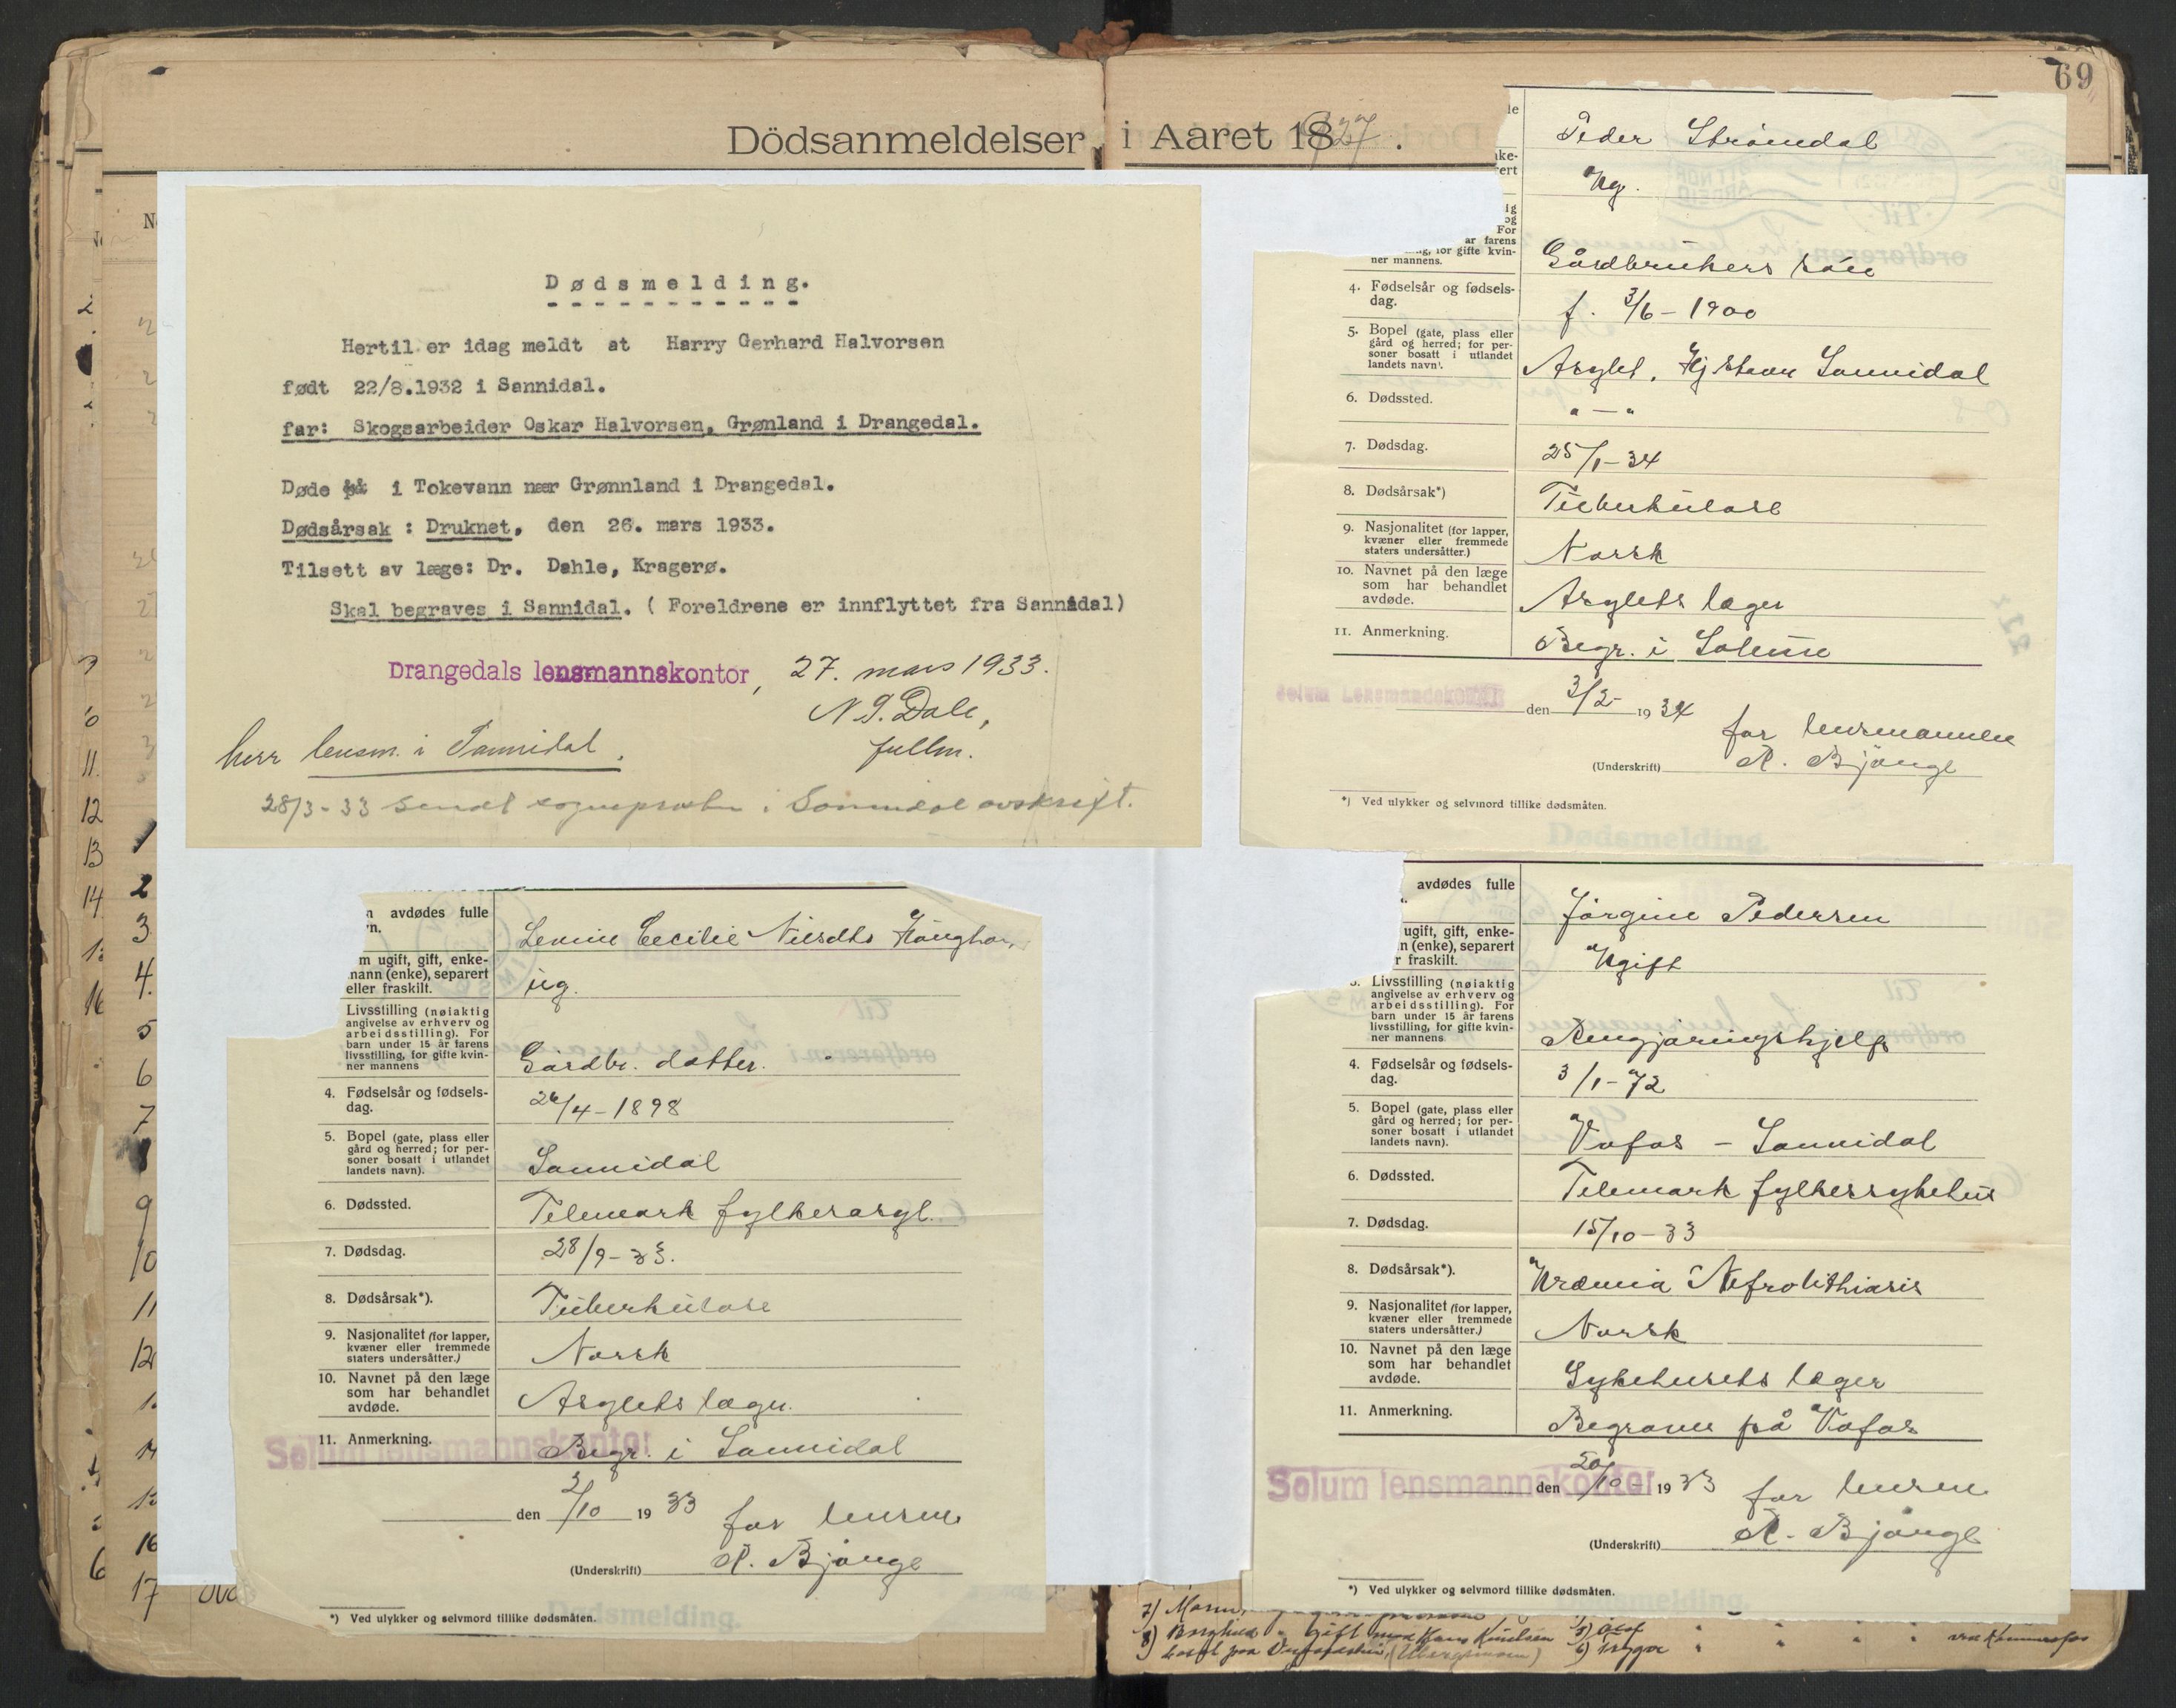 69
Dödsanmeldelser i Aaret 1927.
Dødsmelding.
Hertil er idag meldt at Harry Gerhard Halvorsen
født 22/8.1932 i Sannidal.
far: Skogsarbeider Oskar Halvorsen, Grønland i Drangedal.
Døde på i Tokevann nær Grønnland i Drangedal.
Dødsårsak : Druknet, den 26. mars 1933.
Tilsett av læge: Dr. Dahle, Kragerø.
Skal begraves i Sannidal. ( Foreldrene er innflyttet fra Sannidal)
Drangedals lensmannskontor, 27. mars 1933.
N. G. Dale,
fullm.
herr lensm. i Sannidal.
28/3-33 sendt sognepresten i Sannidal avskrift.
Peder Strømdal
Ug.
For
ar farens
for gifte kvin-
ner mannens.
Gårdbrukers søn
4. Fødselsår og fødsels-
dag.
f. 3/6-1900
5. Bopel (gate, plass eller
gård og herred; for per-
soner bosatt i utlandet
landets navn).
Asylet, Sannidal
6. Dødssted.
" — "
7. Dødsdag.
25/1-34
8. Dødsårsak*)
Tuberkulose
9. Nasjonalitet (for lapper,
kvæner eller fremmede
staters undersåtter.)
Norsk
10. Navnet på den læge
som har behandlet
avdøde.
Asylets læger
11. Anmerkning.
Begr. i Solum
Solum Lensmandskontor
den 3/2- 1934
for lensmannen
R. Bjønge
(Underskrift)
*) Ved ulykker og selvmord tillike dødsmåten.
avdødes fulle
Cecilie Nilsdtr
m ugift, gift, enke-
mann (enke), separert
eller fraskilt.
ug.
Livsstilling (nøiaktig
angivelse av erhverv og
arbeidsstilling). For
barn under 15 år farens
livsstilling, for gifte kvin-
ner mannens
Gårdbr. datter.
4. Fødselsår og fødsels-
dag.
26/4-1898
5. Bopel (gate, plass eller
gård og herred; for per-
soner bosatt i utlandet
landets navn).
Sannidal
6. Dødssted.
Telemark fylkesasyl.
7. Dødsdag.
28/9-33.
8. Dødsårsak*).
Tuberkulose
9. Nasjonalitet (for lapper,
kvæner eller fremmede
staters undersåtter.)
Norsk
10. Navnet på den læge
som har behandlet
avdøde.
Asylets læger.
11. Anmerkning.
Begr. i Sannidal
Solum lensmannskontor
den 2/10 1933
for lensm.
R. Bjønge
(Underskrift)
*) Ved ulykker og selvmord tillike dødsmåten.
avdødes fulle
Jørgine Pedersen
ugift, gift, enke-
n (enke), separert
r fraskilt.
Ugift
3. Livsstilling (nøiaktig
angivelse av erhverv og
arbeidsstilling). For
barn under 15 år farens
livsstilling, for gifte kvin-
ner mannens
Rengjøringshjelp
4. Fødselsår og fødsels-
dag.
3/1-72
5. Bopel (gate, plass eller
gård og herred; for per-
soner bosatt i utlandet
landets navn).
Vafos - Sannidal
6. Dødssted.
Telemark fylkessykehus
7. Dødsdag.
15/10-33
8. Dødsårsak*).
Uræmia Nefrolithiasis
9. Nasjonalitet (for lapper,
kvæner eller fremmede
staters undersåtter.)
Norsk
10. Navnet på den læge
som har behandlet
avdøde.
Sykehusets læger
11. Anmerkning.
Begraves på Vafos
Solum lensmannskontor
den 20/10- 1933
for lensm.
R. Bjønge
(Underskrift)
*) Ved ulykker og selvmord tillike dødsmåten.